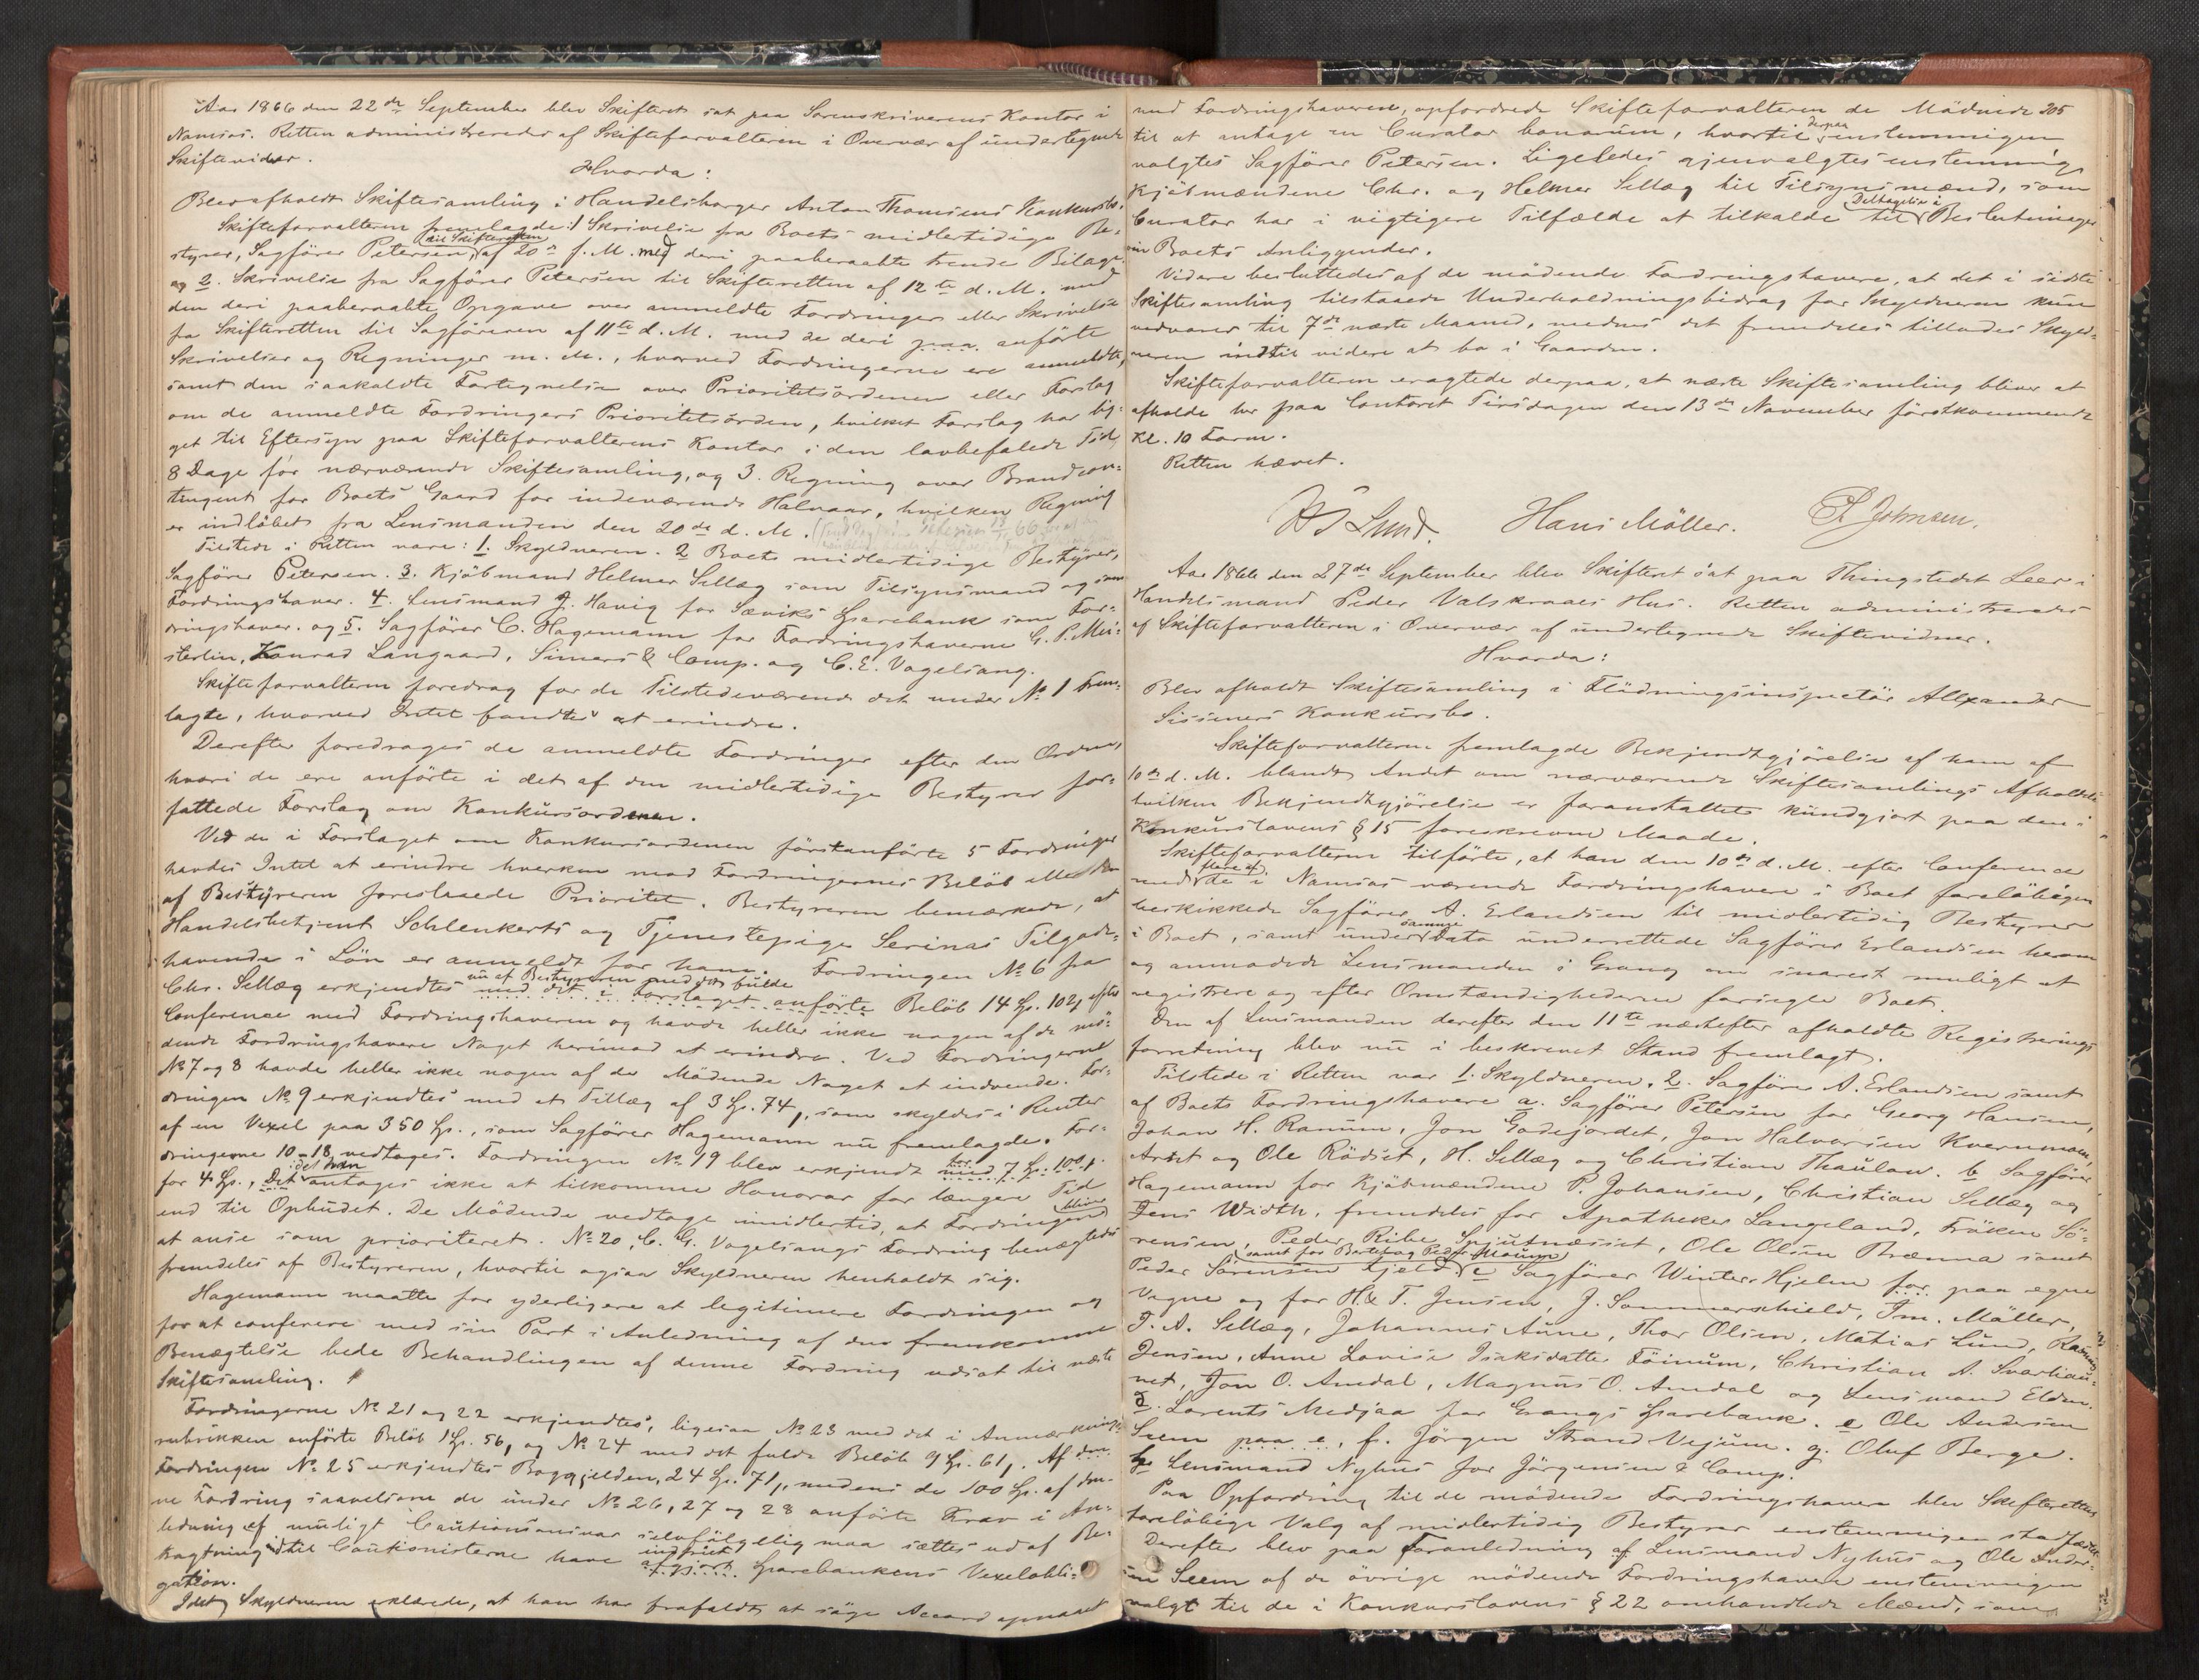 Aar 1866 den 22de September blev Skifteret sat paa Sorenskriverens Kontor i
Namsos. Retten administreredes af Skifteforvalteren i Overvær af undertegnede
Skiftevidner.
Hvorda:
Blev afholdt Skiftesamling i Handelsborger Anton Thomsens Konkursbo.
Skifteforvalteren fremlagde: 1 Skrivelse fra Boets midlertidige Be-
styrer, Sagfører Petersen, til Skifteretten af 20de f. M. med deri paaberaabte trende Bilage.
og 2. Skrivelse fra Sagfører Petersen til Skifteretten af 12te d. M. med
den deri paaberaabte Opgave over anmeldte Fordringer eller Skrivelse
fra Skifteretten til Sagføreren af 11te d. M. med de deri paa anførte
Skrivelser og Regninger m. M., hvorved Fordringerne ere anmeldte,
samt den saakaldte Fortegnelse over Prioritetsordenen eller Forslag
om de anmeldte Fordringers Prioritetsorden, hvilket Forslag har lig-
get til Eftersyn paa Skifteforvalterens Kontor i den lovbefalede Tid
8 Dage før nærværende Skiftesamling, og 3. Regning over Brandcon-
tingent for Boets Gaard for indeværende Halvaar, hvilken Regning
er indløbet fra Lensmanden den 20de d. M.
Tilstede i Retten vare: 1. Skyldneren. 2 Boets midlertidige Bestyrer,
Sagfører Petersen. 3. Kjøbmand Helmer Sellæg som Tilsynsmand og som
Fordringshaver. 4. Lensmand J. Havig for Sæviks Sparebank som For-
dringshaver. og 5. Sagfører C. Hagemann for Fordringshaverne G. P. Mei-
sterlin, Konrad Langaard, Simers & Comp. og C. E. Vogelsang.
Skifteforvalteren foredrog for de Tilstedeværende det under No 1 frem-
lagte, hvorved Intet fandtes at erindre.
Derefter foredroges de anmeldte Fordringer efter den Orden,
hvori de ere anførte i det af den midlertidige Bestyrer for-
fattede Forslag om Konkursordenen.
Ved de i Forslaget om Konkursordenen førstanførte 5 Fordringer
havdes Intet at erindre hverken mod Fordringernes Beløb eller den
af Bestyreren foreslaaede Prioritet. Bestyreren bemærkede, at
Handelsbetjent Schlenkerts og Tjenestepige Serinas Tilgode-
havende i Løn er anmeldt for ham. Fordringen No 6 fra
nu af Bestyreren med det fulde
Chr. Sellæg erkjendtes med det i Forslaget anførte Beløb 14 Sp. 102, efter
Conference med Fordringshaveren og havde heller ikke nogen af de mø-
dende Fordringshavere Noget herimod at erindre. Ved Fordringerne
No 7 og 8 havde heller ikke nogen af de Mødende Noget at indvende. For-
dringen No 9 erkjendtes med et Tillæg af 3 Sp. 74, som skyldes i Renter
af en Vexel paa 350 Sp., som Sagfører Hagemann nu fremlagde. For-
dringerne 10-18 vedtoges. Fordringen No 19 blev erkjendt med 7 Sp. 100
for 4 Sp., idet han Det antages ikke at tilkomme Honorar for længere Tid
end til Opbudet. De Mødende vedtage imidlertid, at Fordringen bliver
at anse som prioriteret. No 20, C. G. Vogelsangs Fordring benægtedes
fremdeles af Bestyreren, hvortil ogsaa Skyldneren henholdt sig.
Hagemann maatte for yderligere at legitimere Fordringen og
for at conferere med sin Part i Anledning af den fremkomne
Benægtelse bede Behandlingen af denne Fordring udsat til næste
Skiftesamling.
Fordringerne No 21 og 22 erkjendtes, ligesaa No 23 med det i Anmærknings-
rubrikken anførte Beløb 1 Sp. 56, og No 24 med det fulde Beløb 9 Sp. 61. Af den
Fordringen No 25 erkjendtes Boggjelden, 24 Sp. 71, medens de 100 Sp. af den-
ne Fordring saavelsom de under No 26, 27 og 28 anførte Krav i An-
ledning af muligt Cautionsansvar selvfølgelig maa sættes ud af Be-
tragtning indtil Cautionisterne have indfriet afgjort Sparebankens Vexelobli-
gation.
Idet Skyldneren erklærede, at han har frafaldt at søge Accord opnaaet
med Fordringshaverne, opfordrede Skifteforvalteren de Mødende 205
til at antage en Curator bonorum, hvortil derpaa enstemmigen
valgtes Sagfører Petersen. Ligeledes gjenvalgtes enstemmig
Kjøbmændene Chr. og Helmer Sellæg til Tilsynsmænd, som
Curator har i vigtigere Tilfælde at tilkalde til Deltagelse i Beslutninger
om Boets Anliggender.
Videre besluttedes af de mødende Fordringshavere, at det i sidste
Skiftesamling tilstaaede Underholdningsbidrag for Skyldneren kun
vedvarer til 7de næste Maaned, medens det fremdeles tillades Skyld-
neren indtil videre at bo i Gaarden.
Skifteforvalteren eragtede derpaa, at næste Skiftesamling bliver at
afholde her paa Contoret Tirsdagen den 13de November førstkommende
Kl. 10 Form.
Retten hævet.
Lund. Hans Möller. Johnsen.
Aar 1866 den 27de September blev Skifteret sat paa Thingstedet Leer i
Handelsmand Peder Valskraaes Hus. Retten administreredes
af Skifteforvalteren i Overvær af undertegnede Skiftevidner.
Hvorda:
Blev afholdt Skiftesamling i Flødningsinspectør Allexander
Sisseners Konkursbo.
Skifteforvalteren fremlagde Bekjendtgjørelse af ham af
10de d. M. blandt Andet om nærværende Skiftesamlings Afholdelse
hvilken Bekjendtgjørelse er foranstaltet kundgjort paa den i
Konkurslovens § 15 foreskrevne Maade.
Skifteforvalteren tilførte, at han den 10de d. M. efter Conference
med flere af de i Namsos værende Fordringshavere i Boet foreløbigen
beskikkede Sagfører A. Erlandsen til midlertidig Bestyrer
i Boet, samt under samme Dato underrettede Sagfører Erlandsen herom
og anmodede Lensmanden i Grong om snarest muligt at
registrere og efter Omstændighederne forsegle Boet.
Den af Lensmanden derefter den 11te næstefter afholdte Registrerings-
forretning blev nu i beskrevet Stand fremlagt.
Tilstede i Retten var 1. Skyldneren. 2. Sagfører A. Erlandsen samt
af Boets Fordringshavere a. Sagfører Petersen for Georg Hansen,
Johan H. Ranum, Jon Godejordet, Jon Halvorsen Kvernmoen,
Arnt og Ole Rödset, H. Sellæg og Christian Thaulow. b Sagfører
Hagemann for Kjøbmændene P. Johansen, Christian Sellæg og
Jens Width, fremdeles for Apotheker Langeland, Frøken Sö-
rensen, Peder Ribe Spjutnæsset, Ole Olsen Brænna samt
Peder Sörensen Fjeld samt for Bertel og Peder Moum c Sagfører Winter-Hjelm for paa egne
Vegne og for H. & T. Jensen, J. Sommerschield, Im. Möller,
J. A. Sellæg, Johannes Aune, Thor Olsen, Matias Lund, Rasmus
Jensen, Anne Lovise Isaksdatter Föinum, Christian A. Svarliau-
net, Jon O. Amdal, Magnus O. Amdal og Lensmand Elden.
d. Lorents Medjaa for Grongs Sparebank. e Ole Andersen
Seem paa e, f. Jörgen Strand Vejum. g. Oluf Berge.
h. Lensmand Nyhus for Jörgensen & Comp.
Paa Opfordring til de mødende Fordringshavere blev Skifterettens
foreløbige Valg af midlertidig Bestyrer enstemmigen stadfæstet.
Derefter blev paa Foranledning af Lensmand Nyhus og Ole Ander-
sen Seem af de øvrige mødende Fordringshavere enstemmigen
valgt til de i Konkurslovens § 22 omhandlede Mænd, som